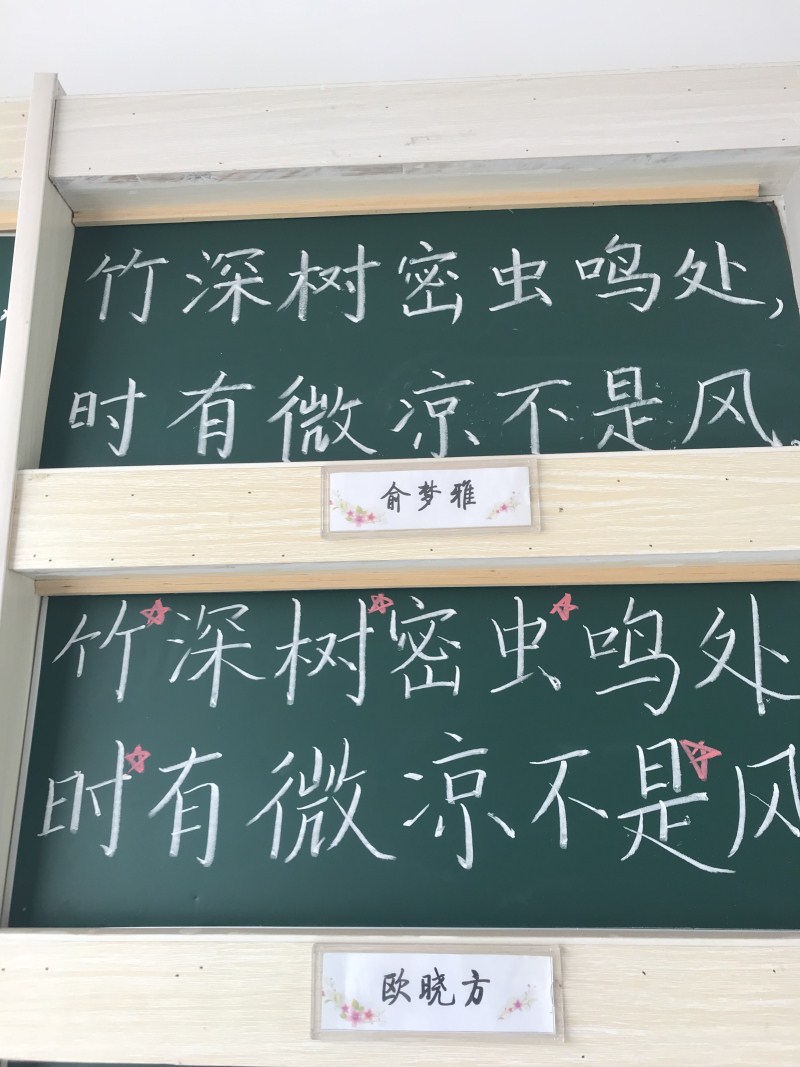 竹深树密虫鸣处,
时有微凉不是风.
俞梦雅
竹深树密虫鸣处
时有微凉不是风
欧晓方